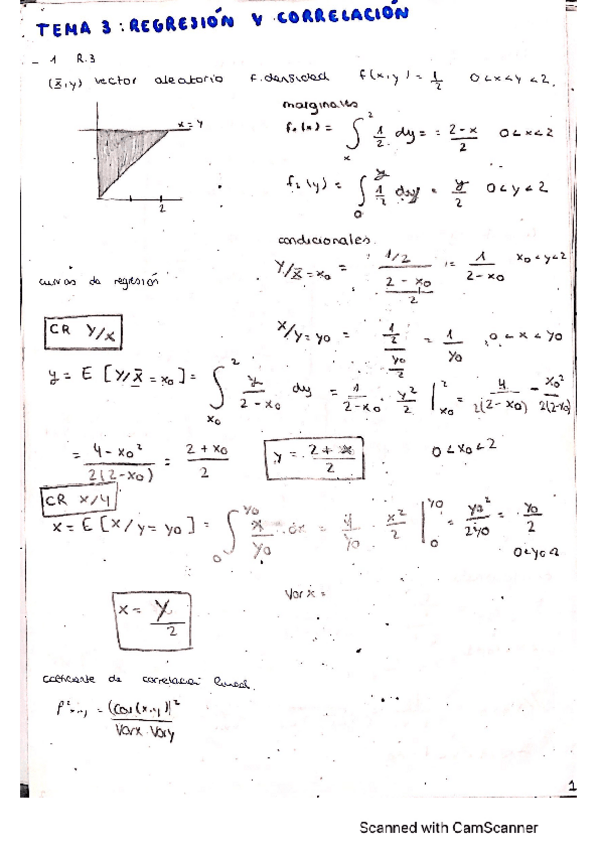 TEMA 3: REGRESIÓN Y CORRELACIÓN
- 1 R.3
(X,y) vector aleatorio f. densidad f(x,y) = 1/2 0<x<y<2.
marginales
x=y
f₁(x) = ∫ₓ² 1/2 dy = = (2-x)/2 0<x<2
f₂(y) = ∫₀ʸ 1/2 dxy = y/2 0<y<2
2
condicionales.
Y/X=x₀ = (1/2)/((2-x₀)/2) = 1/(2-x₀) x₀<y<2
curvas de regresión
CR Y/X
X/y=y₀ = (1/2)/(y₀/2) = 1/y₀ , 0<x<y₀
y = E[Y/X=x₀] = ∫ₓ₀² y/(2-x₀) dy = 1/(2-x₀) · y²/2 |ₓ₀² = 4/(2(2-x₀)) - x₀²/(2(2-x₀))
= (4-x₀²)/(2(2-x₀)) = (2+x₀)/2 y = (2+x)/2 0<x₀<2
CR X/Y
x = E[X/y=y₀] = ∫₀^y₀ x/y₀ dx = 1/y₀ · x²/2 |₀^y₀ = y₀²/2y₀ = y₀/2
0<y₀<2
x = y/2
Var x =
coeficiente de correlación lineal.
ρ²x,y = (cov(x,y))²/(Varx · Vary)
1
Scanned with CamScanner